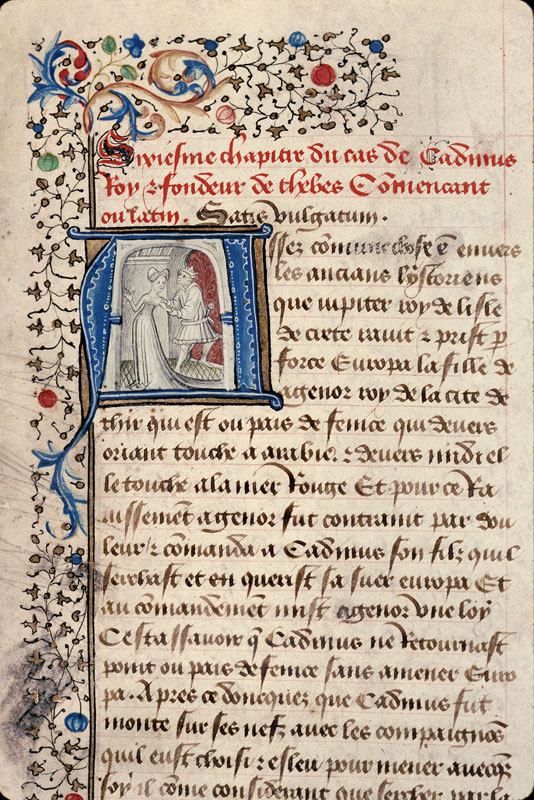 Sixiesme chapitre du cas de Cadmus
Roy ⁊ fondeur de thebes Cõmencant
ou latin. Satis vulgatum.
Assez cõmune chose ẽ enuers
les ancians hystoriens
que iupiter roy de lisle
de crete rauit ⁊ prist p
force Europa la fille de
agenor roy de la cite de
thir qui est ou pais de fenice qui deuers
oriant touche a arabie. ⁊ deuers midi el
le touche a la mer Rouge Et pour ce Ra
uissemẽt agenor fut contraint par dou
leur ⁊ cõmanda a Cadmus son filz quil
serchast et en querist sa suer europa Et
au cõmandement mist agenor vne loy
Cest assauoir q̃ Cadmus ne Retournast
point ou pais de fenice sans amener Euro
pa. Apres ce doncquez que Cadmus fut
monte sur ses nefz auec les compaignõs
quil eust choisi ⁊ esleu pour mener auecq̃z
soy il cõme considerant que sercher par la